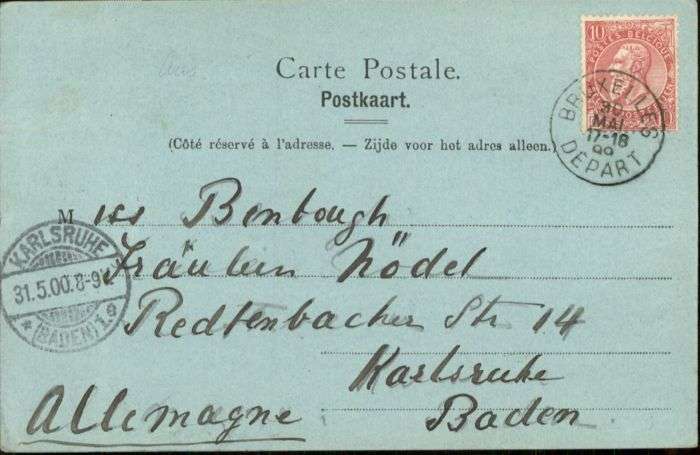 Carte Postale.
Postkaart.
(Côté réservé à l'adresse. — Zijde voor het adres alleen.)
10
POSTES BELGIQUE
BRUXELLES
30
MAI
17-18
99
DÉPART
Miss Bonbough
Fräulein Nödel
Redtenbacher Str 14
Karlsruhe
Baden
Allemagne
KARLSRUHE
31.5.00.8-9V.
* (BADEN) 1.